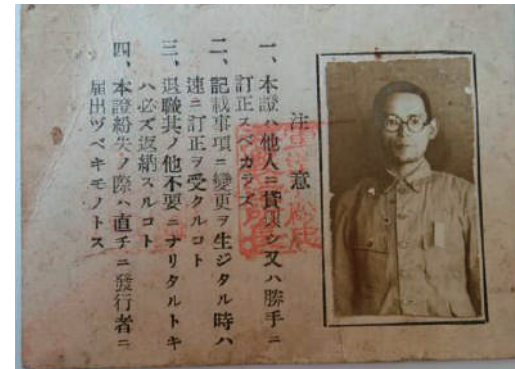 注意
一、本證ハ他人ニ貸與シ又ハ勝手ニ
訂正スベカラズ
二、記載事項ニ變更ヲ生ジタル時ハ
速ニ訂正ヲ受クルコト
三、退職其ノ他不要ニナリタルトキ
ハ必ズ返納スルコト
四、本證紛失ノ際ハ直チニ發行者ニ
届出ヅベキモノトス